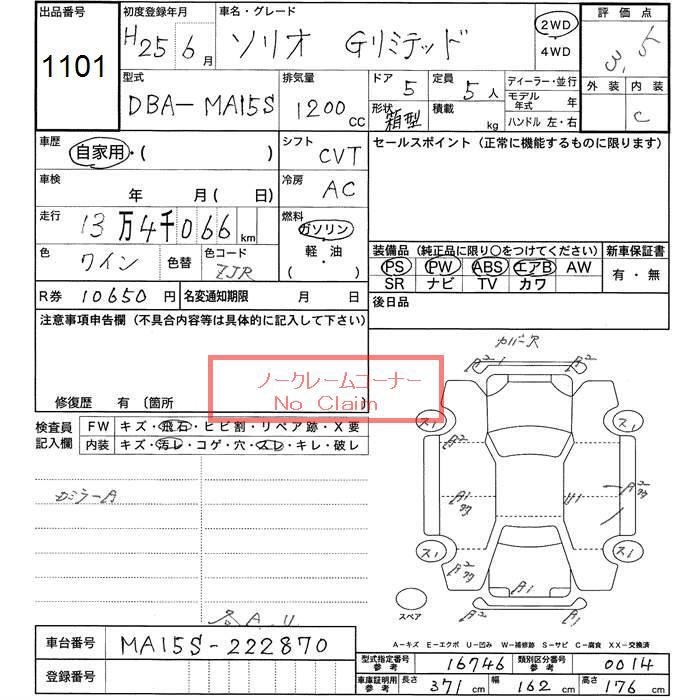 出品番号 初度登録年月 車名・グレード 評価点
1101 H25 6月 ソリオ Gリミテッド 2WD 4WD 3.5
型式 排気量 ドア 5 定員 5人 ディーラー・並行 外装 内装
DBA-MA15S 1200cc 形状 箱型 積載 kg モデル年式 年 C
ハンドル 左・右
車歴 自家用・( ) シフト CVT セールスポイント（正常に機能するものに限ります）
車検 年 月(日) 冷房 AC
走行 13万4千066km 燃料 ガソリン
色 ワイン 色替 色コード ZJR 軽・油 ( )
装備品（純正品に限り〇をつけてください） 新車保証書
PS PW ABS エアB AW 有・無
SR ナビ TV カワ
R券 10650円 名変通知期限 月 日 後日品
注意事項申告欄（不具合内容等は具体的に記入して下さい）
カバー欠
ノークレームコーナー
No Claim
修復歴 有〔箇所 〕
検査員記入欄 FW キズ・飛石・ヒビ割・リペア跡・X要
内装 キズ・汚レ・コゲ・穴・スレ・キレ・破レ
A2 1 A2
ス1 ス1
A2
カミラーA
A1 U1 A2
ス1 ス1
A2
A1
スペア A2 A1
各A.U
A-キズ E-エクボ U-凹み W-補修跡 S-サビ C-腐食 XX-交換済
車台番号 MA15S-222870
型式指定番号 参考 16746 類別区分番号 参考 0014
登録番号
車庫証明用 参考 長さ 371cm 幅 162cm 高さ 176cm